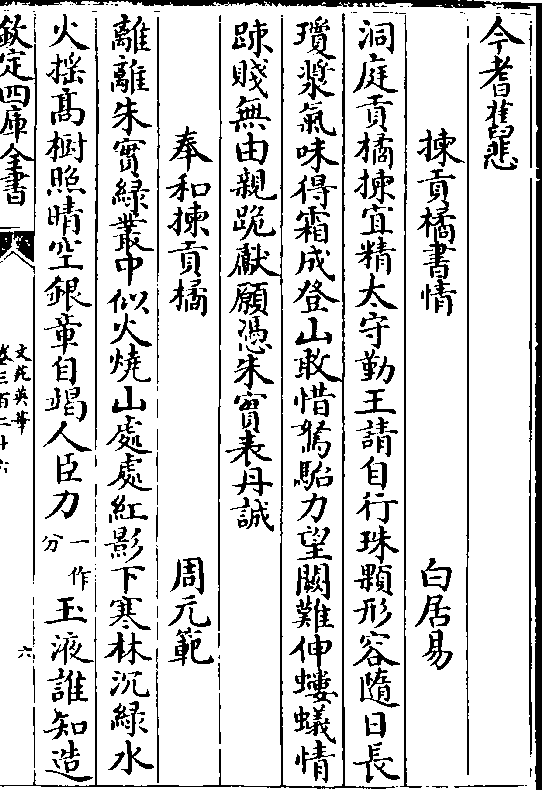 今耆舊悲
揀貢橘書情　白居易
洞庭貢橘揀宜精太守勤王請自行珠顆形容隨日長
瓊漿氣味得霜成登山敢惜駑駘力望闕難伸螻蟻情
踈賤無由親跪獻願憑朱實表丹誠
奉和揀貢橘　周元範
離離朱實綠叢中似火燒山處處紅影下寒林沉綠水
火揺髙樹照晴空銀章自竭人臣力一作分玉液誰知造
欽定四庫全書
文苑英華
卷三百二十六
六